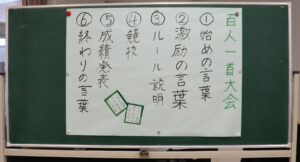 百人一首大会
①始めの言葉
②激励の言葉
③ルール説明
④競技
⑤成績発表
⑥終わりの言葉